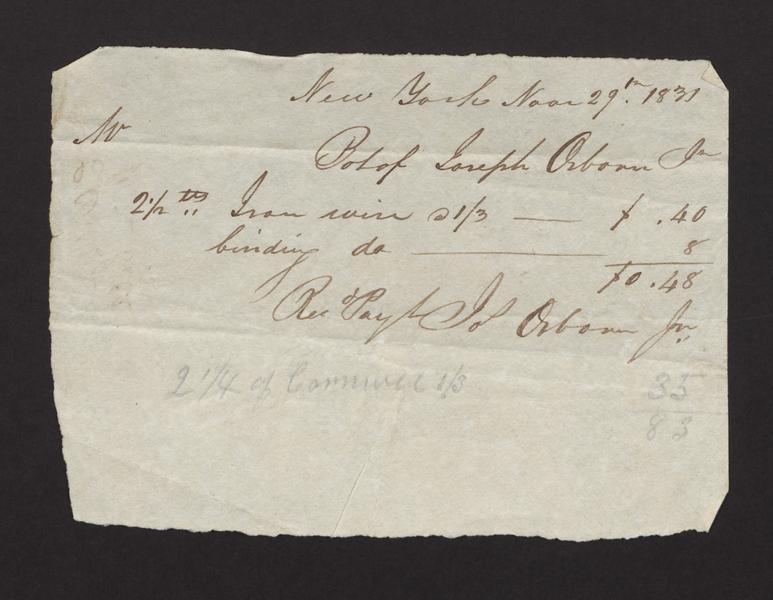 New York Novr 29th. 1831
Mr
Bot of Joseph Osborn Jr
2 1/2 lbs Iron wire a 1/3 — $ .40
binding do — 8
$0.48
Recd Payt Jos Osborn Jr
2 1/4 of 1/3 35
83